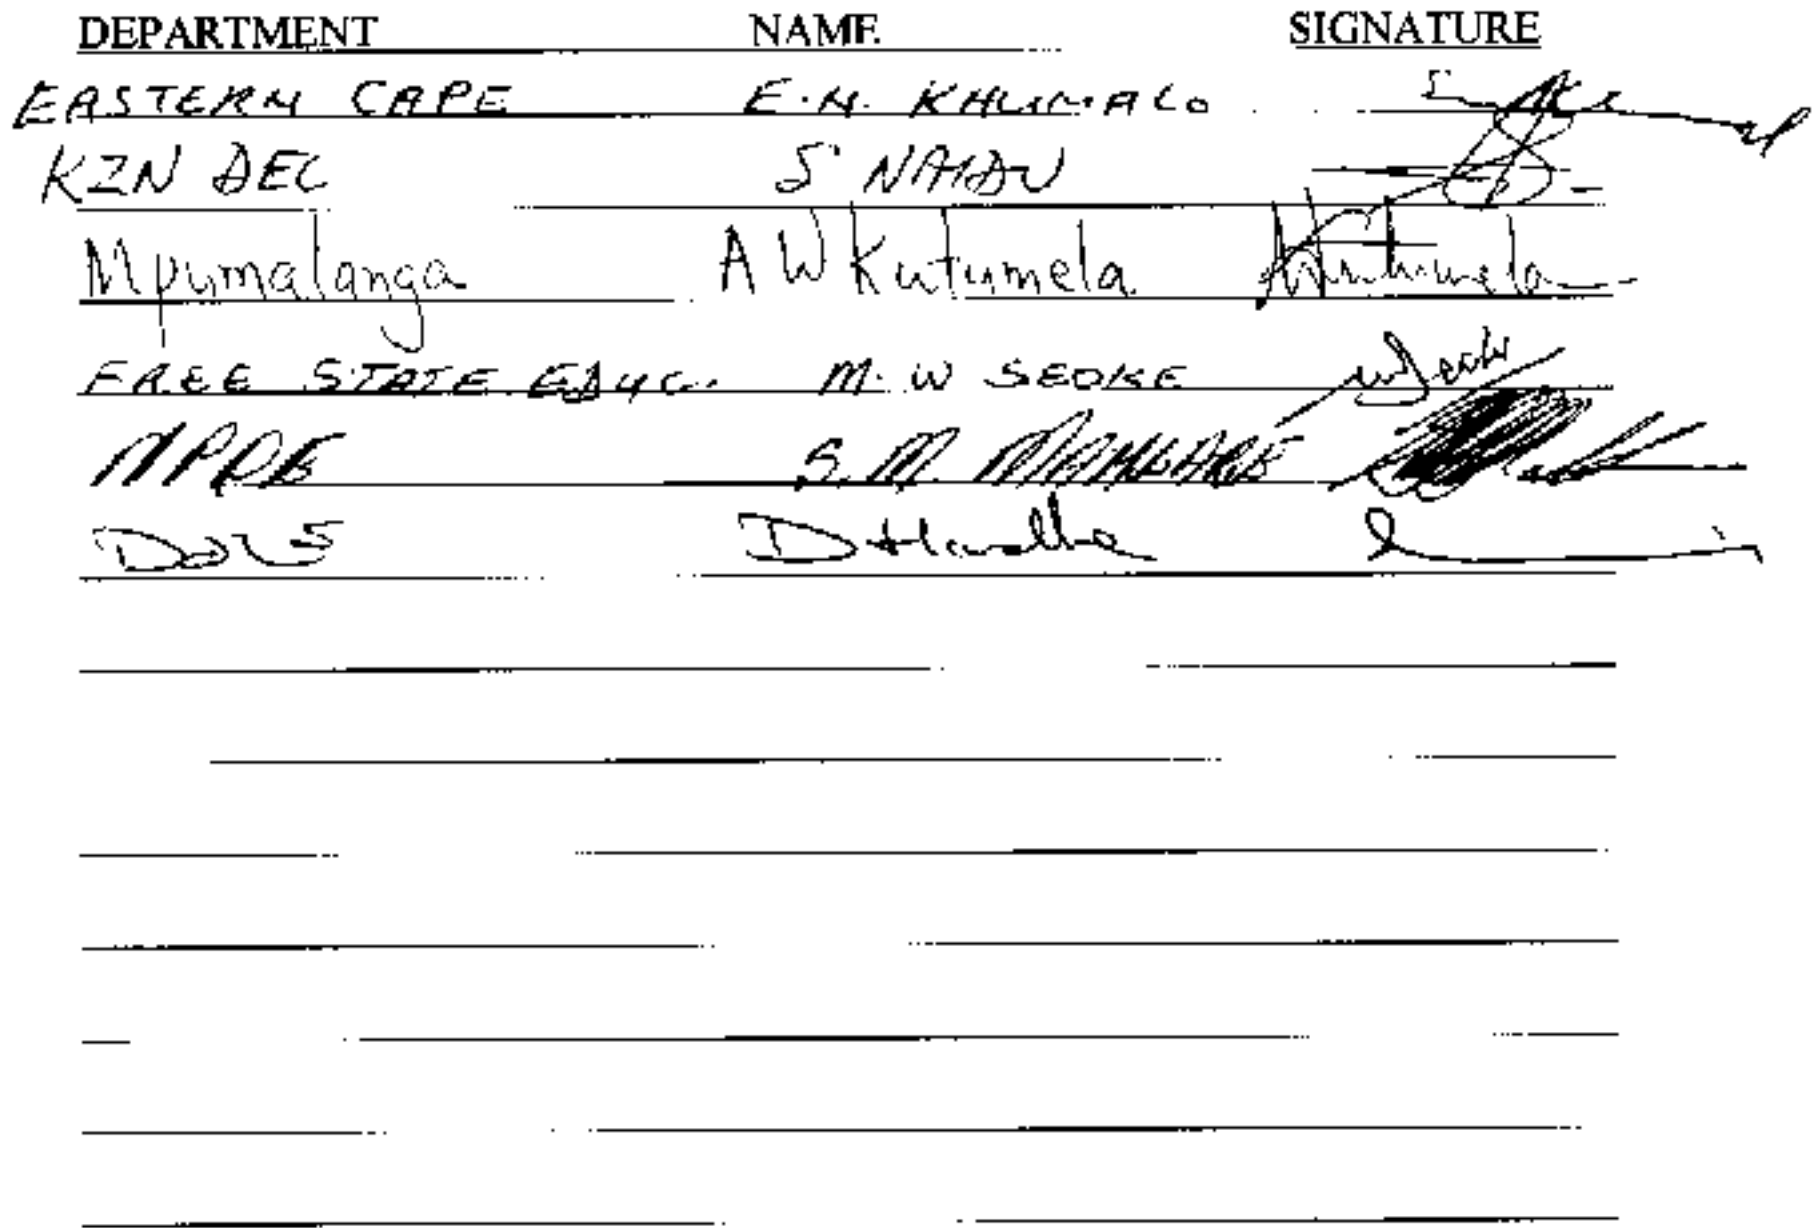 DEPARTMENT NAME SIGNATURE
EASTERN CAPE E.N. KHUMALO
KZN DEC S NAIDU
Mpumalanga A W Kutumela Kutumela
FREE STATE EDUC. M.W SEOKE
NPDE S.M.
D